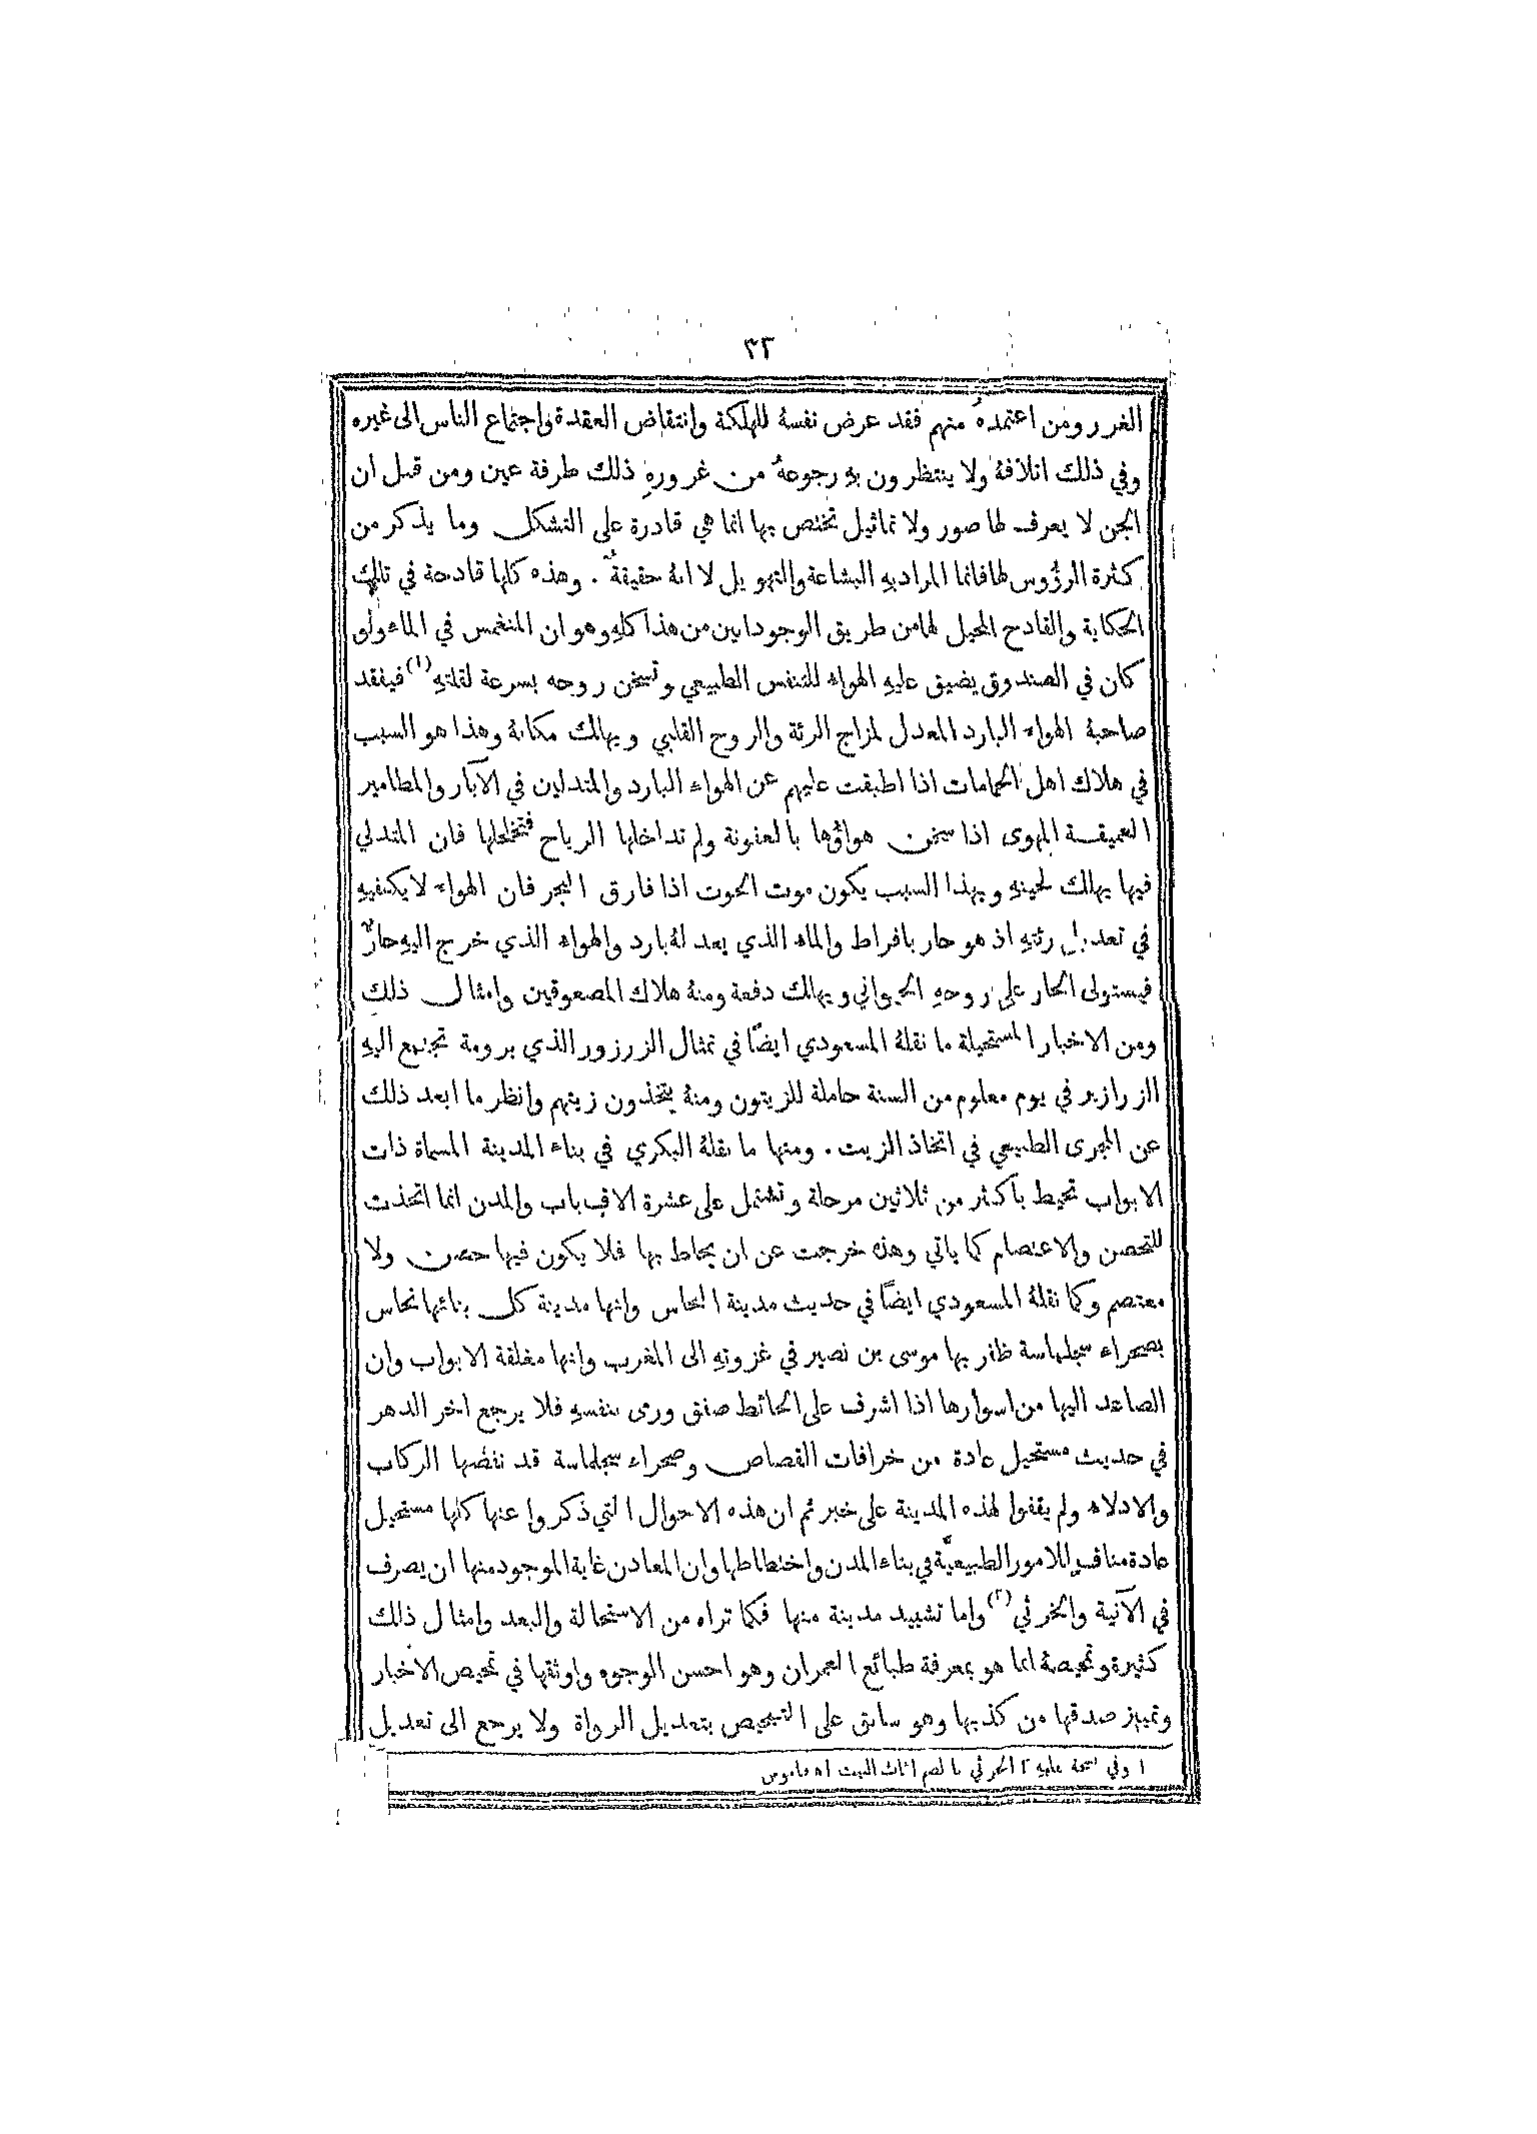 ٣٣
الغرر ومن اعتمده منهم فقد عرض نفسهُ للهلكة وانتقاض العقدة واجتماع الناس الى غيره
وفي ذلك اتلافهُ ولا ينتظرون بهِ رجوعهُ من غرورهِ ذلك طرفة عين ومن قبل ان
الجن لا يعرف لها صور ولا تماثيل تختص بها انما هي قادرة على التشكل وما يذكر من
كثرة الرؤوس لها فانما المراد بهِ البشاعة والتهويل لا انهُ حقيقةٌ . وهذه كلها قادحة في تلك
الحكاية والقادح المحيل لها من طريق الوجود ابين من هذا كلهِ وهو ان المنغمس في الماء ولو
كان في الصندوق يضيق عليهِ الهواء للتنفس الطبيعي وتسخن روحه بسرعة لقلتهِ (١) فيفقد
صاحبهُ الهواء البارد المعدل لمزاج الرئة والروح القلبي ويهلك مكانهُ وهذا هو السبب
في هلاك اهل الحمامات اذا اطبقت عليهم عن الهواء البارد والمتدلين في الآبار والمطامير
العميقة المهوى اذا سخن هواؤها بالعفونة ولم تداخلها الرياح فتخلخلها فان المتدلي
فيها يهلك لحينهِ وبهذا السبب يكون موت الحوت اذا فارق البحر فان الهواء لا يكفيهِ
في تعديل رئتهِ اذ هو حار بافراط والماء الذي يعدلهُ بارد والهواء الذي خرج اليهِ حارٌّ
فيستولى الحار على روحهِ الحيواني ويهلك دفعة ومنهُ هلاك المصعوقين وامثال ذلك
ومن الاخبار المستحيلة ما نقلهُ المسعودي ايضًا في تمثال الزرزور الذي برومة تجتمع اليهِ
الزرازير في يوم معلوم من السنة حاملة للزيتون ومنهُ يتخذون زيتهم وانظر ما ابعد ذلك
عن المجرى الطبيعي في اتخاذ الزيت . ومنها ما نقلهُ البكري في بناء المدينة المسماة ذات
الابواب تحيط باكثر من ثلاثين مرحلة وتشتمل على عشرة الاف باب والمدن انما اتخذت
للتحصن والاعتصام كما ياتي وهذه خرجت عن ان يحاط بها فلا يكون فيها حصن ولا
معتصم وكما نقلهُ المسعودي ايضًا في حديث مدينة النحاس وانها مدينة كل بنائها نحاس
بصحراء سجلماسة ظفر بها موسى بن نصير في غزوتهِ الى المغرب وانها مغلقة الابواب وان
الصاعد اليها من اسوارها اذا اشرف على الحائط صفق ورمى بنفسهِ فلا يرجع اخر الدهر
في حديث مستحيل عادة من خرافات القصاص وصحراء سجلماسة قد نفضها الركاب
والادلاء ولم يقفوا لهذه المدينة على خبر ثم ان هذه الاحوال التي ذكروا عنها كلها مستحيل
عادة منافٍ للامور الطبيعيَّة في بناء المدن واختطاطها وان المعادن غاية الموجود منها ان يصرف
في الآنية والخرثي (٢) واما تشييد مدينة منها فكما تراه من الاستحالة والبعد وامثال ذلك
كثيرة وتمحيصهُ انما هو بمعرفة طبائع العمران وهو احسن الوجوه واوثقها في تمحيص الاخبار
وتمييز صدقها من كذبها وهو سابق على التمحيص بتعديل الرواة ولا يرجع الى تعديل
١ وفي نسخة عليهِ ٢ الخرثي بالضم اثاث البيت اه قاموس